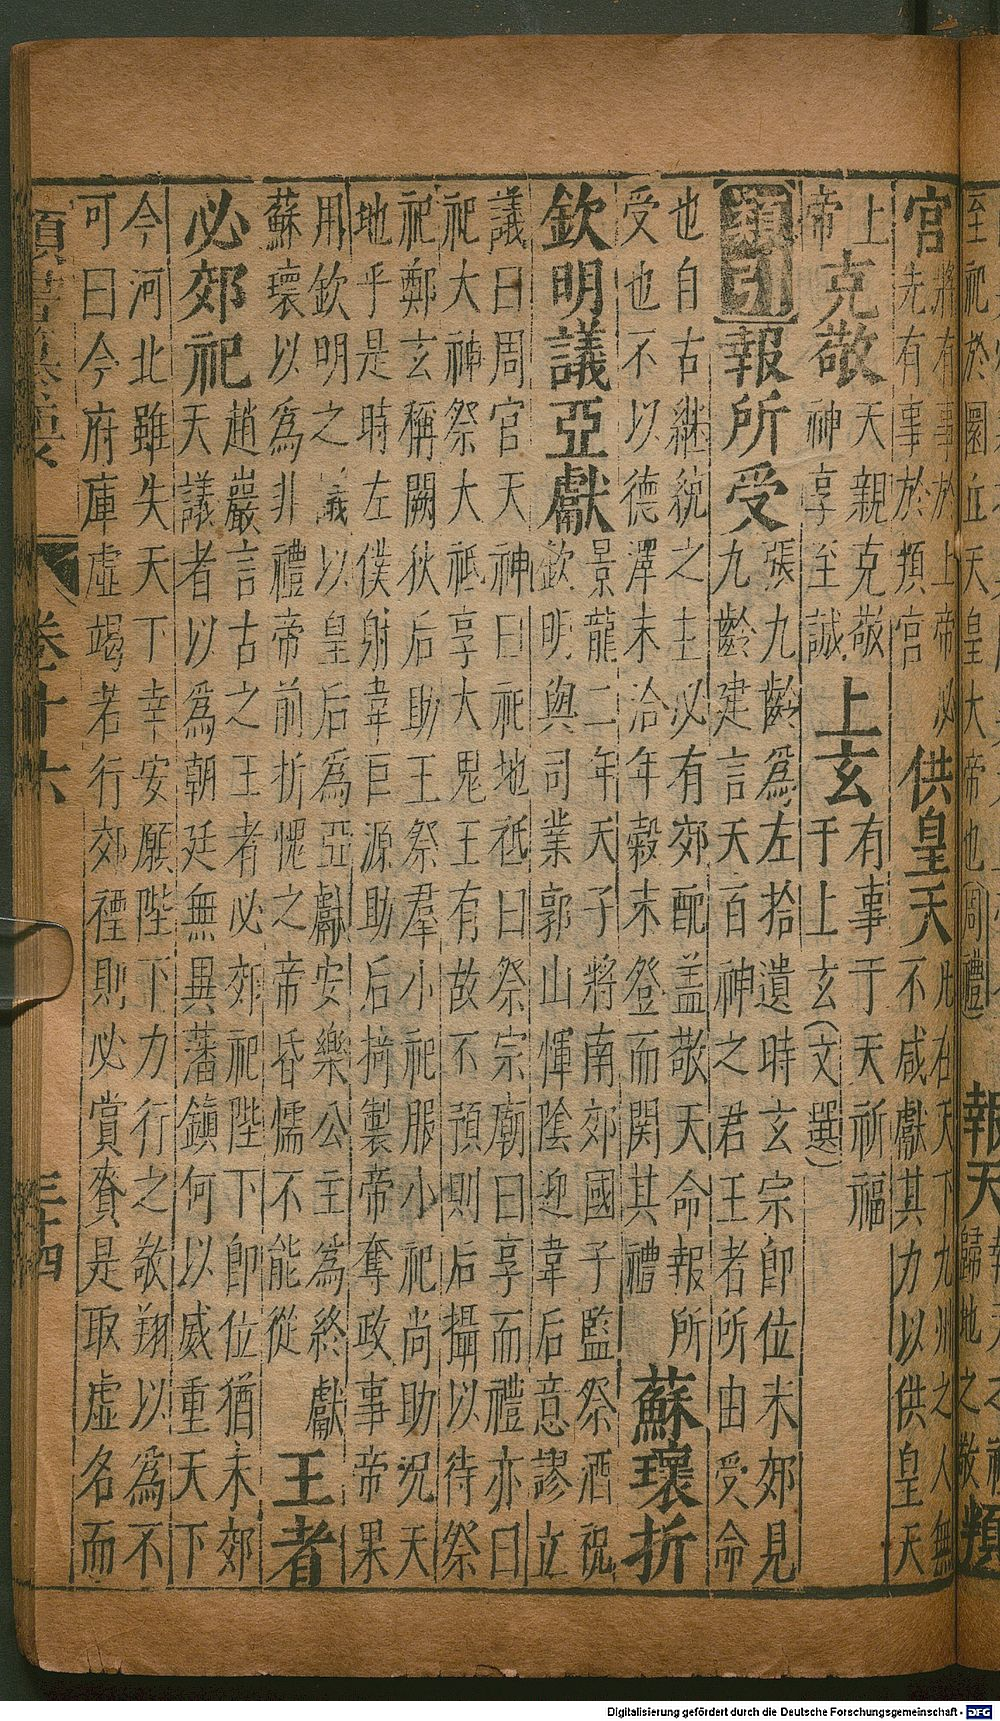 至祀於圜丘天皇大帝也(周禮)報天歸地之敬
宮
將有事於上帝必
先有事於頖宮
供皇天
凡在天下九州之人無
不咸獻其力以供皇天
上
帝
克敬
天親克敬
神享至誠
上玄
有事于天祈福
于上玄(文選)
類引
報所受
張九齡爲左拾遺時玄宗即位未郊見
九齡建言天百神之君王者所由受命
也自古継統之主必有郊配盖敬天命報所
受也不以德澤未洽年穀未登而関其禮
蘇瓌折
欽明議亞獻
景龍二年天子將南郊國子監祭酒祝
欽明與司業郭山惲陰迎韋后意謬立
議曰周官天神曰祀地祗曰祭宗廟曰享而禮亦曰
祀大神祭大祗享大鬼王有故不預則后攝以待祭
祀鄭玄稱闕狄后助王祭羣小祀服小祀尚助况天
地乎是時左僕射韋巨源助后掎製帝奪政事帝果
用欽明之議以皇后爲亞獻安樂公主為終獻
蘇瓌以為非禮帝前折愧之帝昏懦不能從
王者
必郊祀
趙巖言古之王者必郊祀陛下即位猶未郊
天議者以爲朝廷無異藩鎮何以威重天下
今河北雖失天下幸安願陛下力行之敬翔以為不
可曰今府庫虛竭若行郊禋則必賞賚是取虛名而
類書纂要 卷十六 三十四
Digitalisierung gefördert durch die Deutsche Forschungsgemeinschaft - DFG